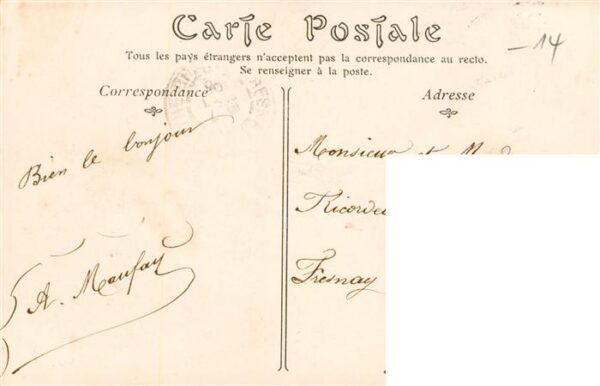 Carte Postale
Tous les pays étrangers n'acceptent pas la correspondance au recto.
Se renseigner à la poste.
Correspondance
Adresse
-14
Bien le bonjour
A. Maufay
Monsieur et
Fresnay